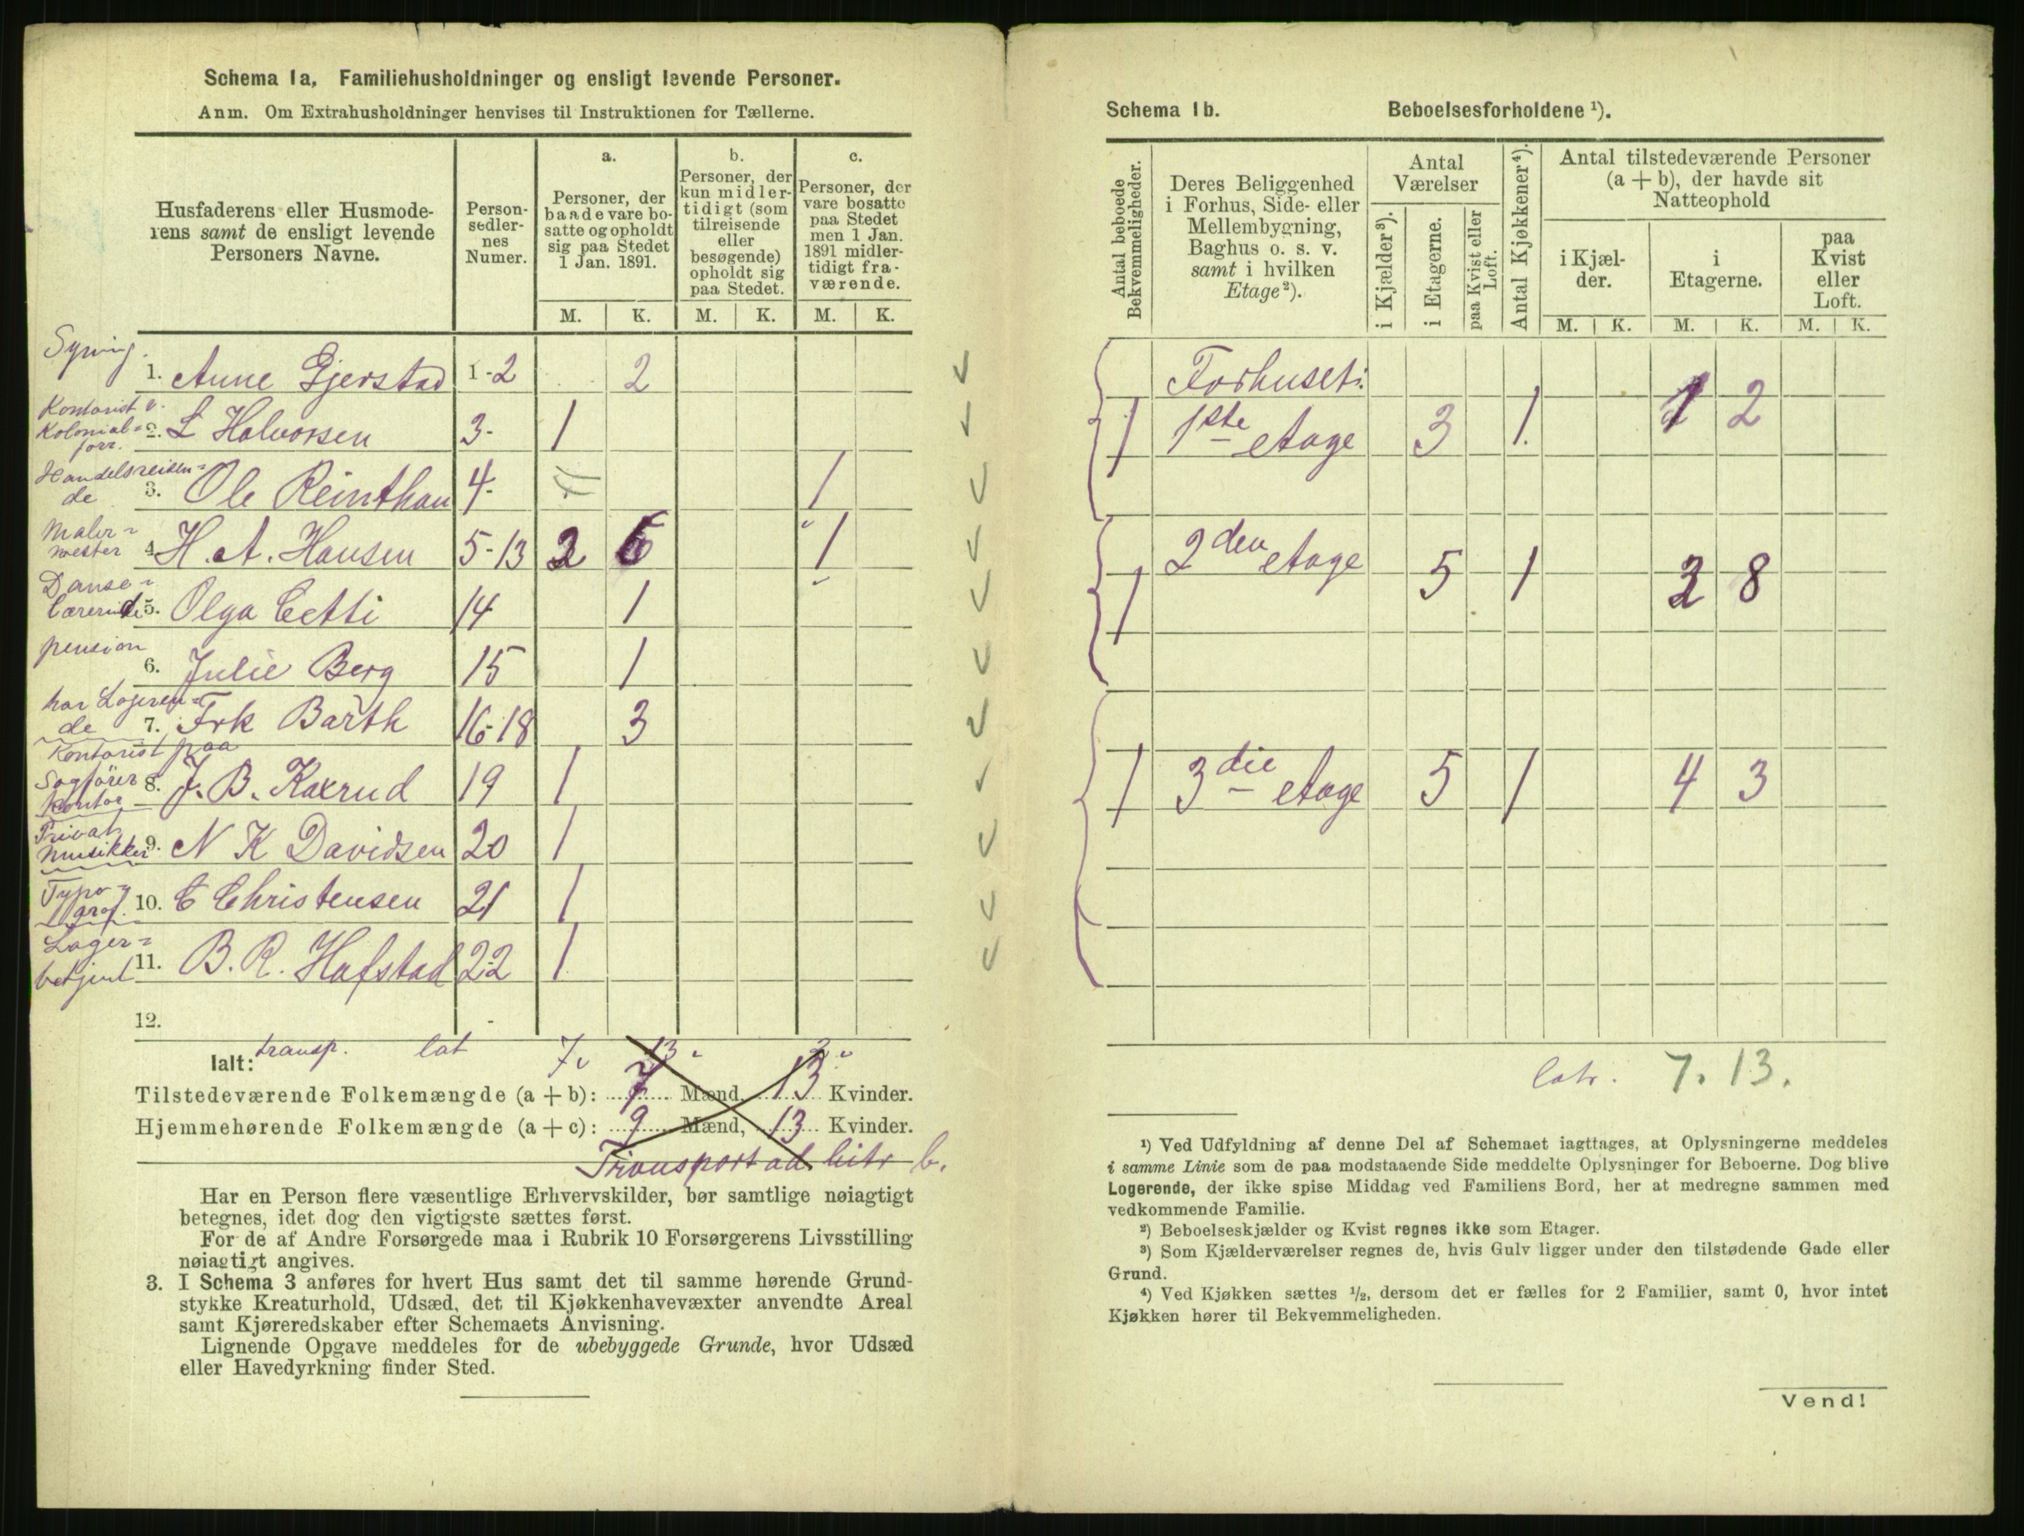 Schema 1a, Familiehusholdninger og ensligt levende Personer.
Anm. Om Extrahusholdninger henvises til Instruktionen for Tællerne.
Husfaderens eller Husmode-
rens samt de ensligt levende
Personers Navne.
Person-
sedler-
nes
Numer.
a.
Personer, der
baade vare bo-
satte og opholdt
sig paa Stedet
1 Jan. 1891.
b.
Personer, der
kun midler-
tidigt (som
tilreisende
eller
besøgende)
opholdt sig
paa Stedet.
c.
Personer, der
vare bosatte
paa Stedet
men 1 Jan.
1891 midler-
tidigt fra-
værende.
M. K. M. K. M. K.
Syning.
1. Anne Gjerstad 1-2 2
Kontorist
Kolonial=
forr.
2. L Halvorsen 3- 1
Handelsreisen=
de
3. Ole Reinthan 4- 1
Maler=
mester
4. H. A. Hansen 5-13 2 6 1
Danse=
lærerinde
5. Olga Cetti 14 1
pension
6. Julie Berg 15 1
har Logeren=
de
7. Frk Barth 16-18 3
Kontorist paa
Sagfører
kontor
8. J. B. Kaxrud 19 1
Privat
musikker
9. N K Davidsen 20 1
Typo=
graf.
10. C Christensen 21 1
Lager=
betjent
11. B. R. Hafstad 22 1
12.
Ialt: transp. lat 7 13 2
Tilstedeværende Folkemængde (a + b): 7 Mænd, 13 Kvinder.
Hjemmehørende Folkemængde (a + c): 9 Mænd, 13 Kvinder.
Transport ad litr b.
Har en Person flere væsentlige Erhvervskilder, bør samtlige nøiagtigt
betegnes, idet dog den vigtigste sættes først.
For de af Andre Forsørgede maa i Rubrik 10 Forsørgerens Livsstilling
nøiagtigt angives.
3. I Schema 3 anføres for hvert Hus samt det til samme hørende Grund-
stykke Kreaturhold, Udsæd, det til Kjøkkenhavevæxter anvendte Areal
samt Kjøreredskaber efter Schemaets Anvisning.
Lignende Opgave meddeles for de ubebyggede Grunde, hvor Udsæd
eller Havedyrkning finder Sted.
Schema 1b. Beboelsesforholdene ¹).
Antal beboede
Bekvemmeligheder.
Deres Beliggenhed
i Forhus, Side- eller
Mellembygning,
Baghus o. s. v.
samt i hvilken
Etage²).
Antal
Værelser
i Kjælder³).
i Etagerne.
paa Kvist eller
Loft.
Antal Kjøkkener⁴).
Antal tilstedeværende Personer
(a + b), der havde sit
Natteophold
i Kjæl-
der.
i
Etagerne.
paa
Kvist
eller
Loft.
M. K. M. K. M. K.
Forhuset:
1 1ste etage 3 1 1 2
1 2den etage 5 1 2 8
1 3die etage 5 1 4 3
latr. 7. 13.
¹) Ved Udfyldning af denne Del af Schemaet iagttages, at Oplysningerne meddeles
i samme Linie som de paa modstaaende Side meddelte Oplysninger for Beboerne. Dog blive
Logerende, der ikke spise Middag ved Familiens Bord, her at medregne sammen med
vedkommende Familie.
²) Beboelseskjælder og Kvist regnes ikke som Etager.
³) Som Kjælderværelser regnes de, hvis Gulv ligger under den tilstødende Gade eller
Grund.
⁴) Ved Kjøkken sættes ½, dersom det er fælles for 2 Familier, samt 0, hvor intet
Kjøkken hører til Bekvemmeligheden.
Vend!